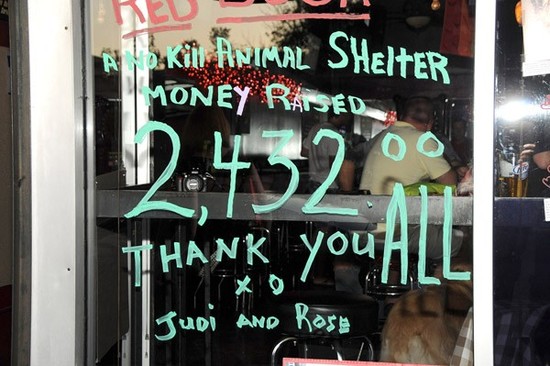 RED DOOR
A NO Kill ANIMAL SHElTER
MONEY RAISED
2,432.00
THANK YOU ALL
XO
JUDI AND ROSE